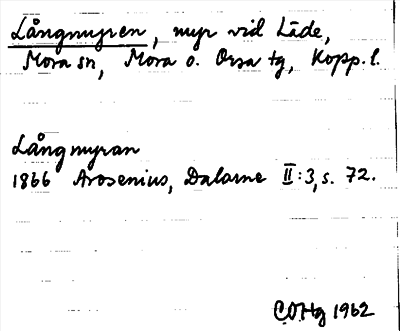 Långmyren, myr vid Läde,
Mora sn, Mora o. Orsa tg, Kopp. l.
Långmyran
1866 Arosenius, Dalarne II:3, s. 72.
COHg 1962